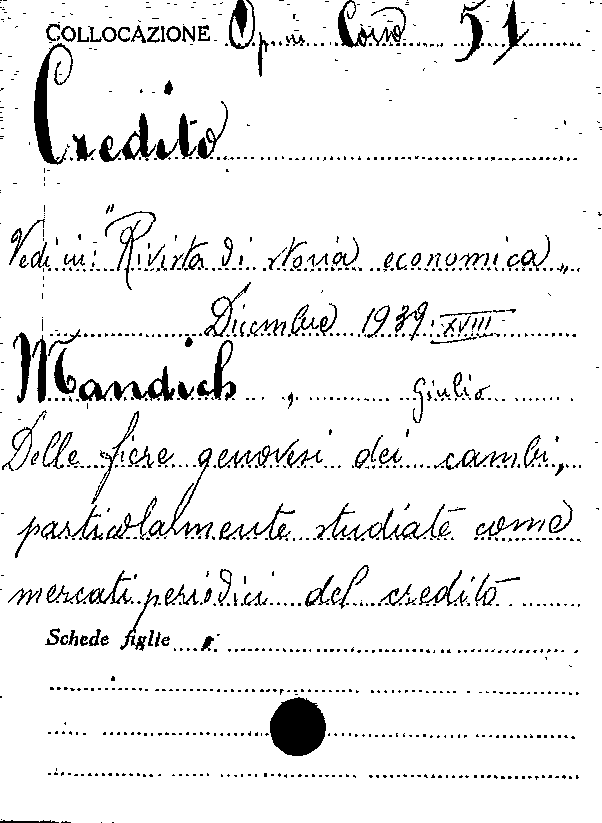 COLLOCAZIONE Op. in Corso 51
Credito
Vedi in: "Rivista di storia economica„
Dicembre 1939. XVIII
Mandich, Giulio
Delle fiere genovesi dei cambi,
particolarmente studiate come
mercati periodici del credito
Schede figlie